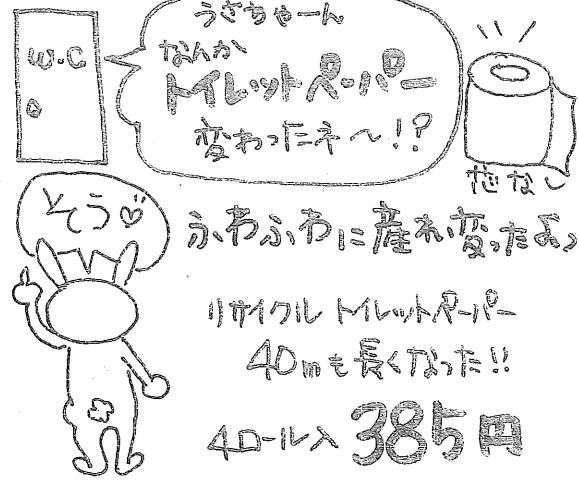 W.C
うさちゃーん
なんか
トイレットペーパー
変わったネ〜!?
芯なし
そう♡
ふわふわに産れ変ったよっ
リサイクル トイレットペーパー
40mも長くなった!!
4ロール入 385円